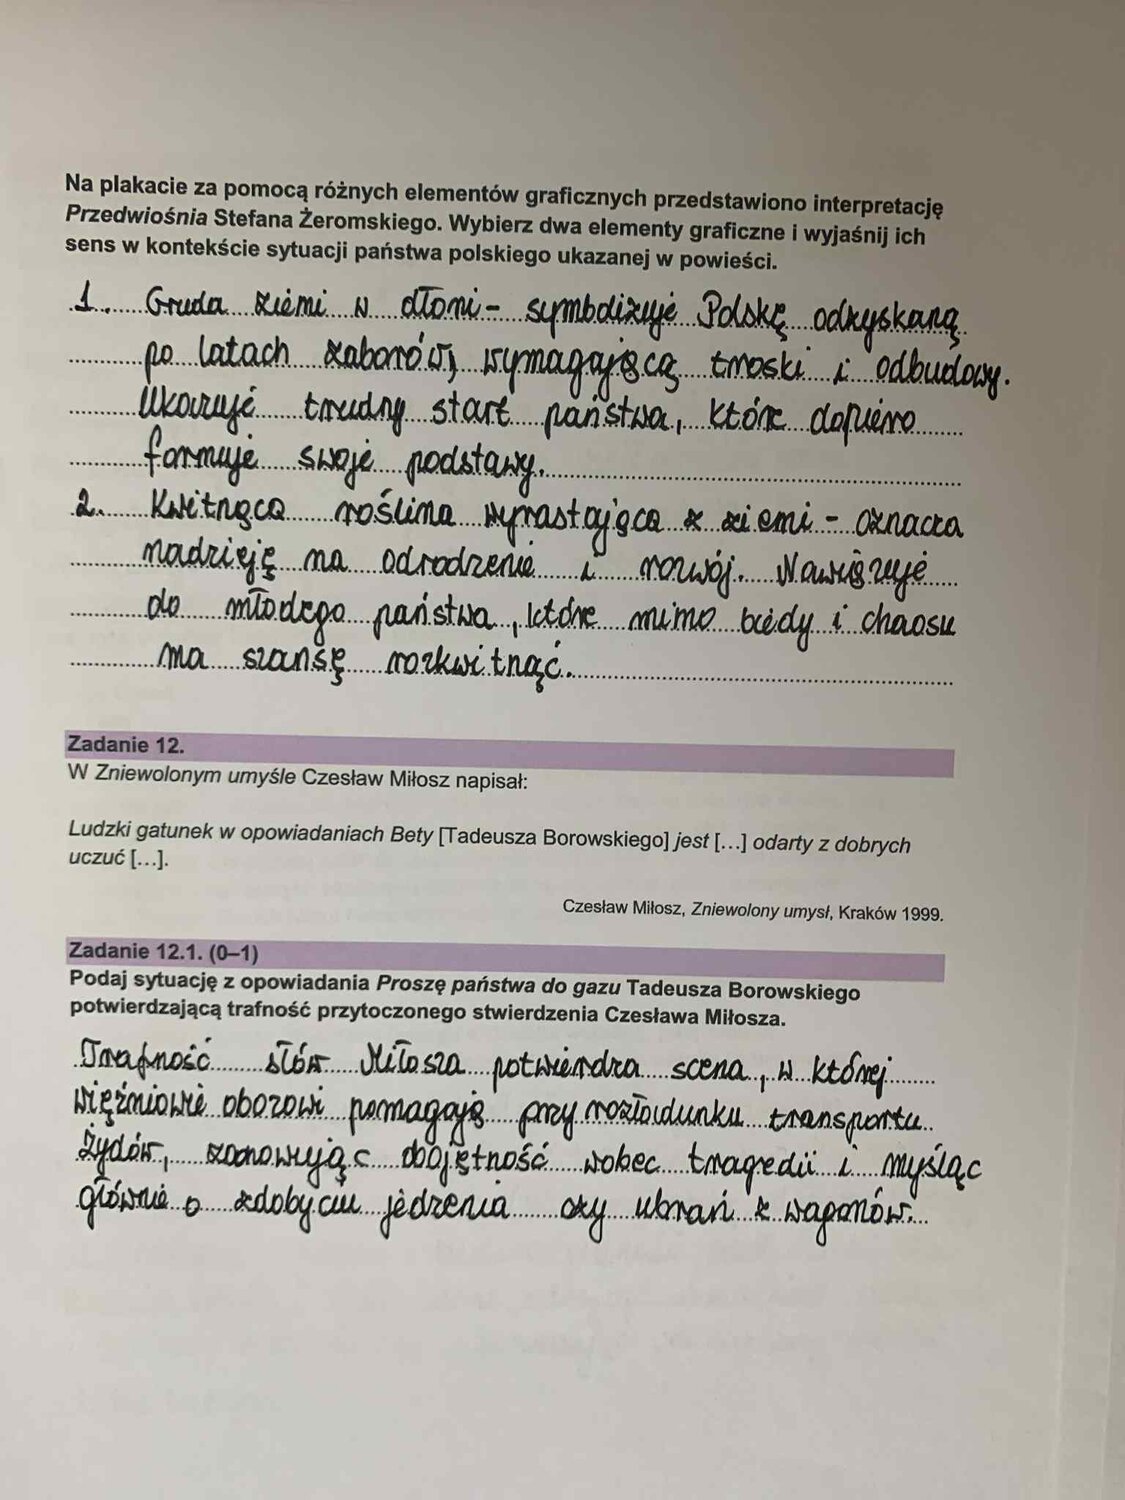 Na plakacie za pomocą różnych elementów graficznych przedstawiono interpretację
Przedwiośnia Stefana Żeromskiego. Wybierz dwa elementy graficzne i wyjaśnij ich
sens w kontekście sytuacji państwa polskiego ukazanej w powieści.
1. Gruda ziemi w dłoni - symbolizuje Polskę odzyskaną
po latach zaborów, wymagającą troski i odbudowy.
Ukazuje trudny start państwa, które dopiero
formuje swoje podstawy.
2. Kwitnąca roślina wyrastająca z ziemi - oznacza
nadzieję na odrodzenie i rozwój. Nawiązuje
do młodego państwa, które mimo biedy i chaosu
ma szansę rozkwitnąć.
Zadanie 12.
W Zniewolonym umyśle Czesław Miłosz napisał:
Ludzki gatunek w opowiadaniach Bety [Tadeusza Borowskiego] jest [...] odarty z dobrych
uczuć [...].
Czesław Miłosz, Zniewolony umysł, Kraków 1999.
Zadanie 12.1. (0–1)
Podaj sytuację z opowiadania Proszę państwa do gazu Tadeusza Borowskiego
potwierdzającą trafność przytoczonego stwierdzenia Czesława Miłosza.
Trafność słów Miłosza potwierdza scena, w której
więźniowie obozowi pomagają przy rozładunku transportu
Żydów, zachowując obojętność wobec tragedii i myśląc
głównie o zdobyciu jedzenia czy ubrań z wagonów.